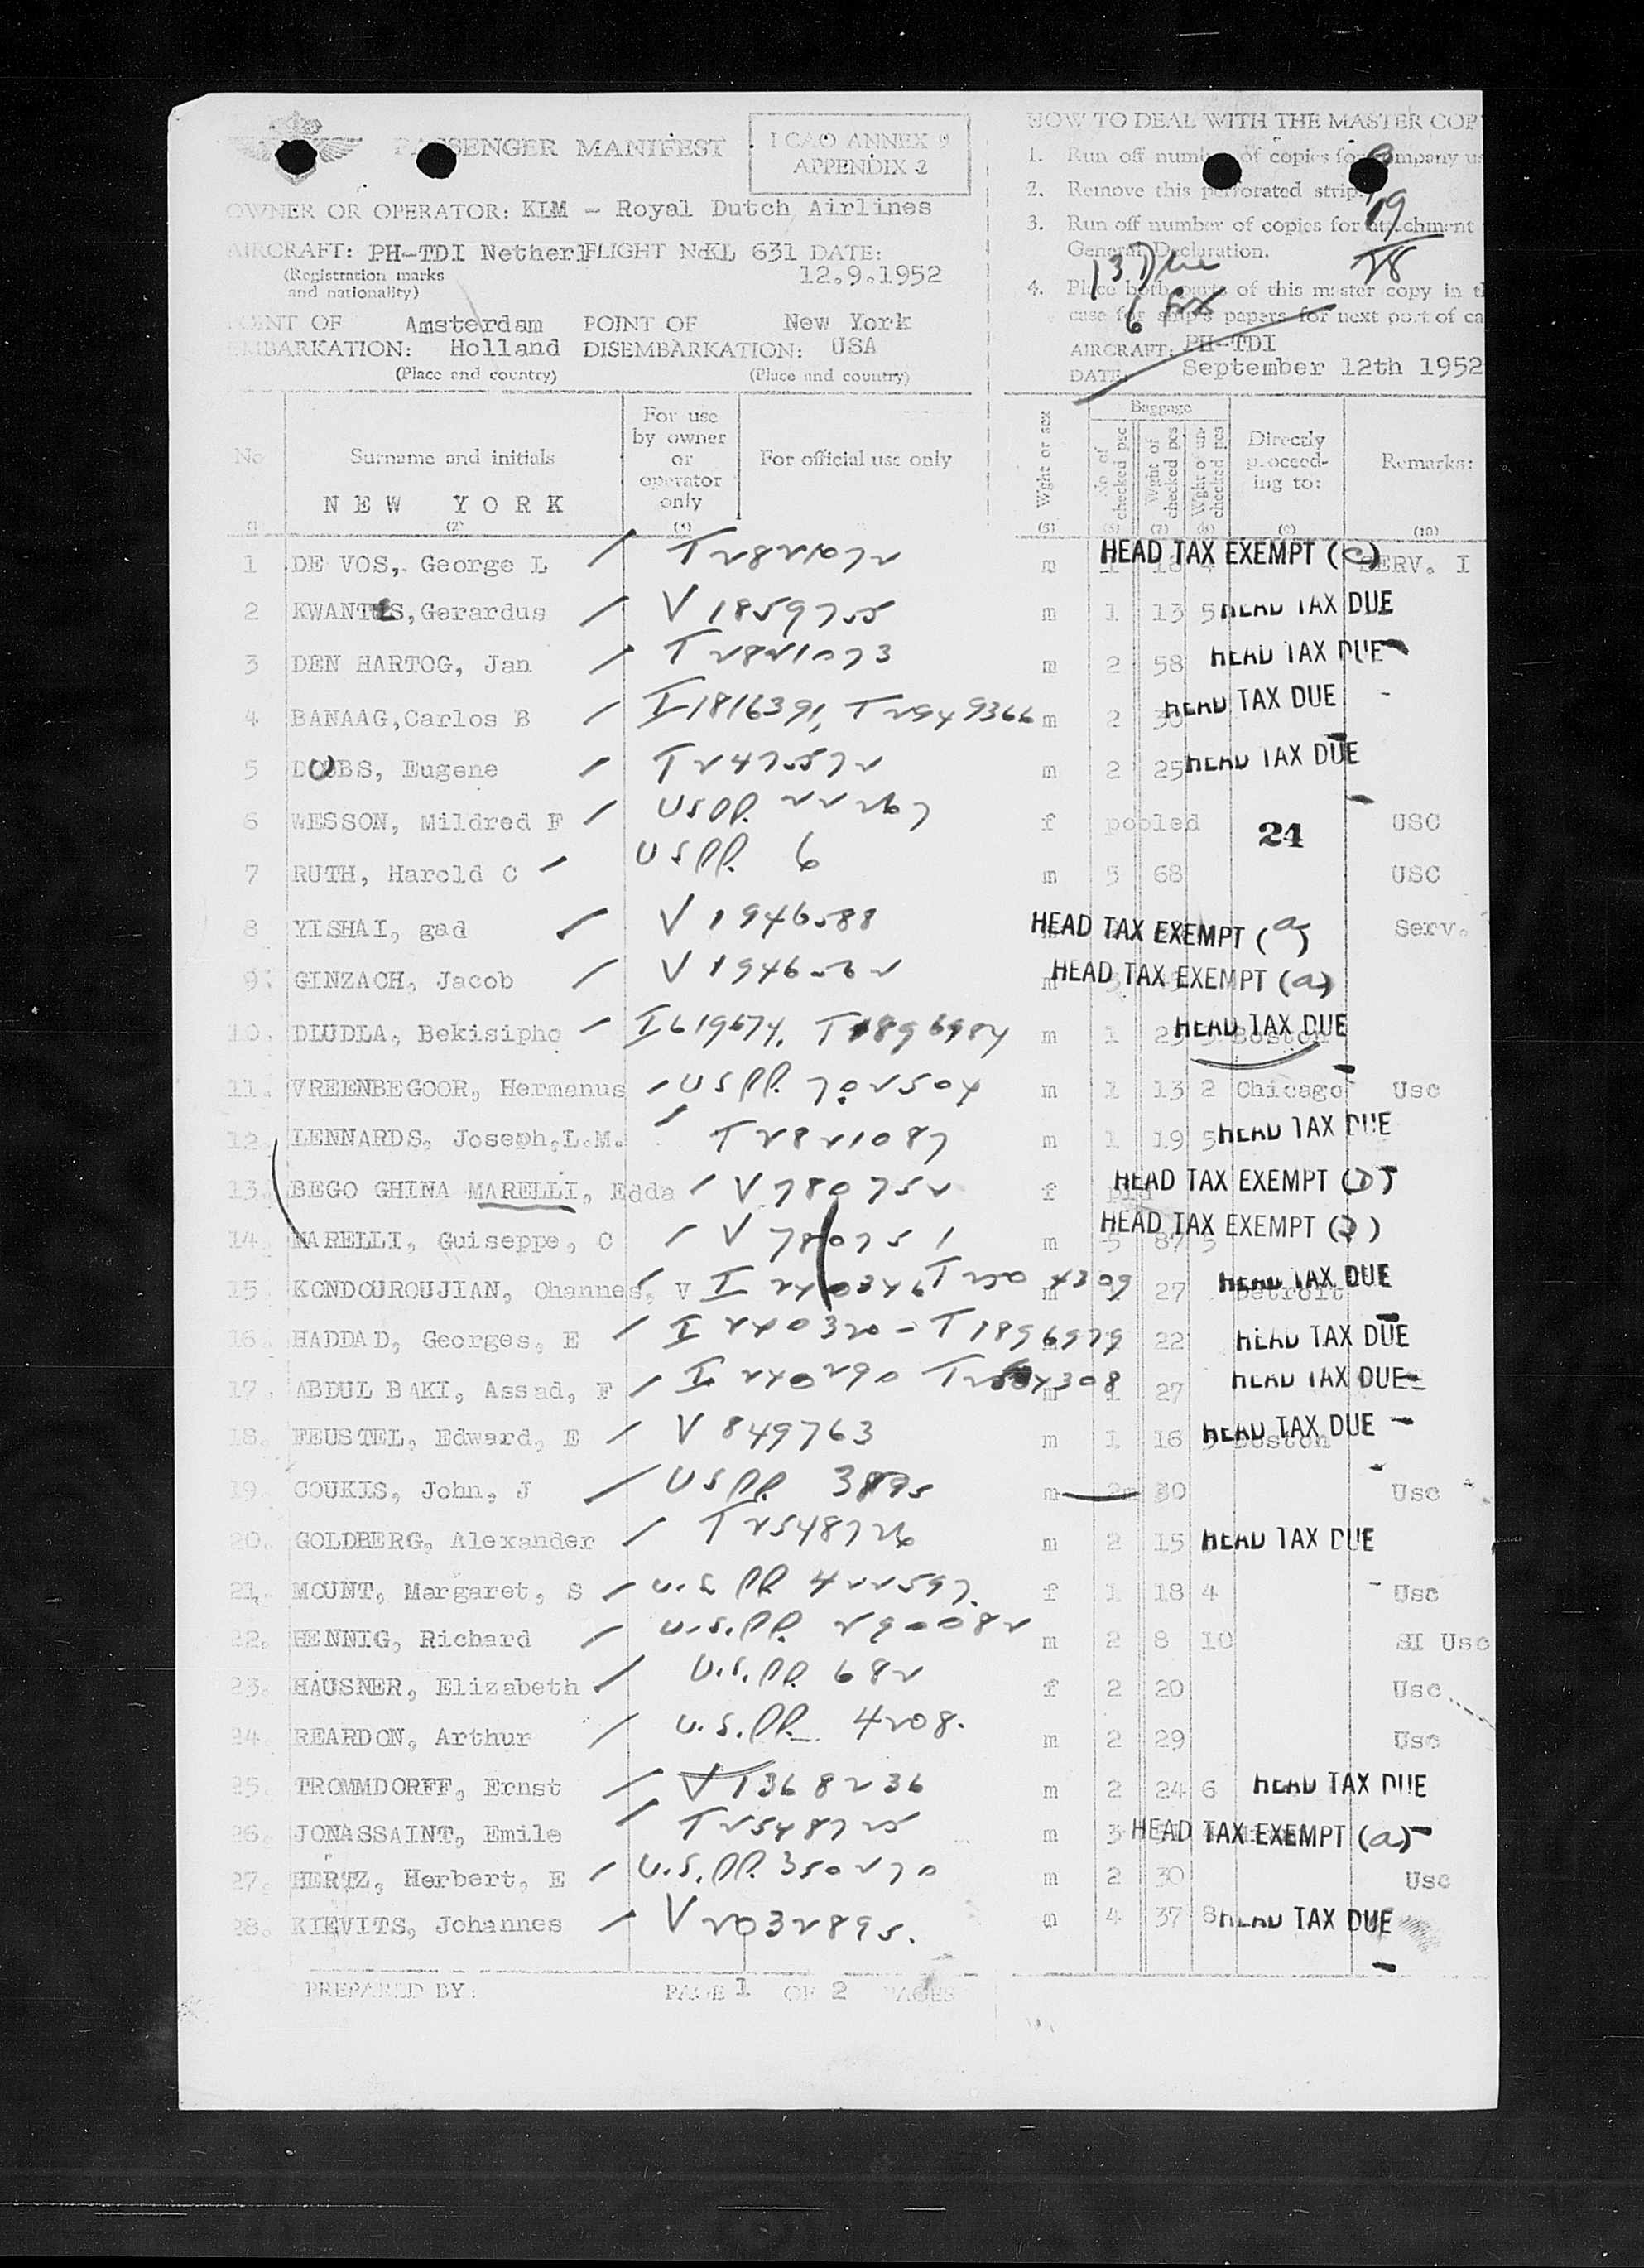 PASSENGER MANIFEST
I CAO ANNEX 9
APPENDIX 2
OWNER OR OPERATOR: KLM - Royal Dutch Airlines
AIRCRAFT: PH-TDI Netherl FLIGHT No KL 631 DATE:
(Registration marks
and nationality)
12.9.1952
POINT OF Amsterdam POINT OF New York
EMBARKATION: Holland DISEMBARKATION: USA
(Place and country) (Place and country)
HOW TO DEAL WITH THE MASTER COP
1. Run off number of copies for company us
2. Remove this perforated strip.
3. Run off number of copies for attachment
General Declaration.
4. Place both parts of this master copy in t
case for ship's papers for next port of ca
19
28
13 Due
6 Ex
AIRCRAFT: PH-TDI
DATE: September 12th 1952
No Surname and initials For use by owner or operator only For official use only Wght or sex Baggage No of checked pcs Wght of checked pcs Wght o un-checked pcs Directly proceed-ing to: Remarks:
NEW YORK
(2) (3) (5) (7) (8) (9) (10)
1 DE VOS, George L T2821072 m 1 18 HEAD TAX EXEMPT (c) SERV. I
2 KWANTES, Gerardus V 1859755 m 1 13 5 HEAD TAX DUE
3 DEN HARTOG, Jan T2821073 m 2 58 HEAD TAX DUE
4 BANAAG, Carlos B I1816391, T2949366 m 2 30 HEAD TAX DUE
5 DOBBS, Eugene T2475572 m 2 25 HEAD TAX DUE
6 WESSON, Mildred F USPP. 22267 f pooled 24 USC
7 RUTH, Harold C USPP. 6 m 5 68 USC
8 YISHAI, gad V 1946588 HEAD TAX EXEMPT (a) Serv.
9. GINZACH, Jacob V 1946562 m HEAD TAX EXEMPT (a)
10. DLUDLA, Bekisipho I619674, T1896984 m 1 23 HEAD TAX DUE Boston
11. VREENBEGOOR, Hermanus USPP. 702504 m 1 13 2 Chicago Usc
12. LENNARDS, Joseph, L.M. T2821087 m 1 19 5 HEAD TAX DUE
13. BEGO GHINA MARELLI, Edda V780752 f HEAD TAX EXEMPT (D)
14. MARELLI, Guiseppe, C V 780751 m 5 87 5 HEAD TAX EXEMPT (D)
15. KONDOUROUJIAN, Ohannes, V I 240346 T2504309 m 27 HEAD TAX DUE Detroit
16. HADDAD, Georges, E I 240320 - T1896979 22 HEAD TAX DUE
17. ABDUL BAKI, Assad, F I 240290 T2504308 m 1 27 HEAD TAX DUE
18. FEUSTEL, Edward, E V 849763 m 1 16 HEAD TAX DUE Boston
19. COUKIS, John, J USPP. 3895 m 2 30 Usc
20. GOLDBERG, Alexander T2548726 m 2 15 HEAD TAX DUE
21. MOUNT, Margaret, S U.S PP. 422597. f 1 18 4 Usc
22. HENNIG, Richard U.S.PP. 290082 m 2 8 10 SI Usc
23. HAUSNER, Elizabeth U.S.PP. 682 f 2 20 Usc
24. REARDON, Arthur U.S.PP. 4208. m 2 29 Usc
25. TROMMDORFF, Ernst V 1368236 m 2 24 6 HEAD TAX DUE
26. JONASSAINT, Emile T2548725 m 3 HEAD TAX EXEMPT (a)
27. HERTZ, Herbert, E U.S.PP. 350270 m 2 30 Usc
28. KIEVITS, Johannes V 2032895. m 4 37 8 HEAD TAX DUE
PREPARED BY: PAGE 1 OF 2 PAGES